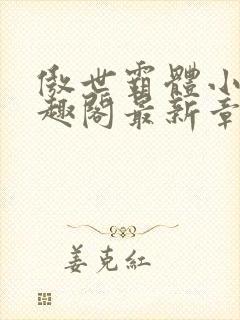 傲世霸體小
趣閣最新章
姜克紅